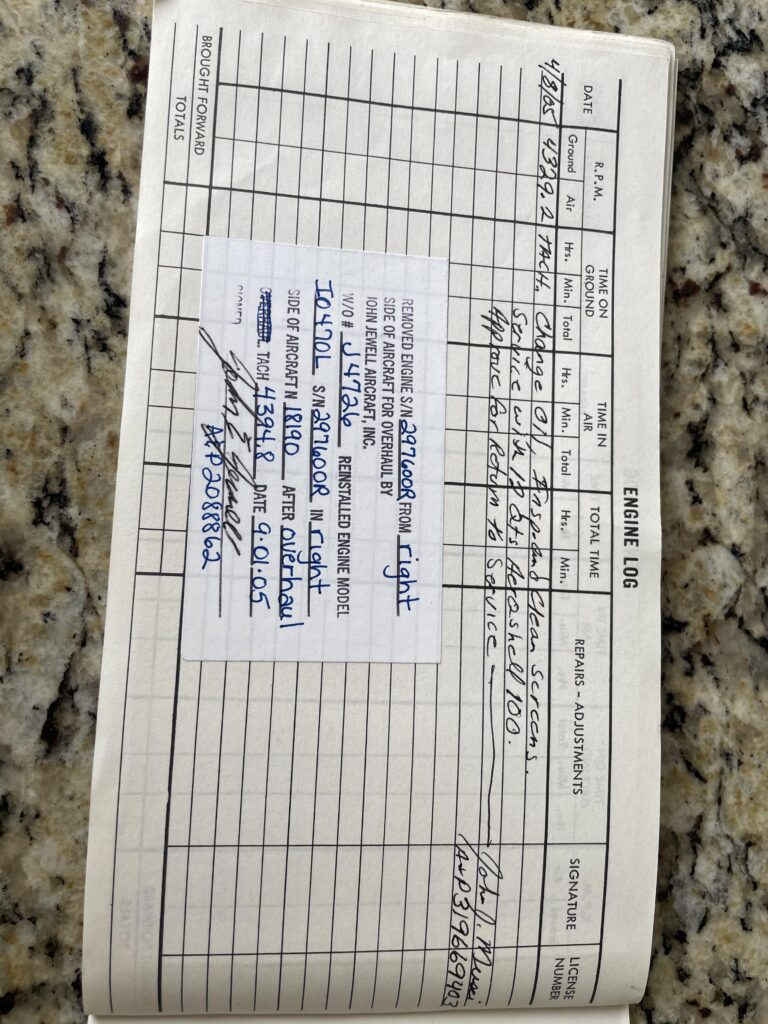 ENGINE LOG
DATE R.P.M. TIME ON GROUND TIME IN AIR TOTAL TIME REPAIRS - ADJUSTMENTS SIGNATURE LICENSE NUMBER
Ground Air Hrs. Min. Total Hrs. Min. Total Hrs. Min.
4/8/05 4329.2 TACH. Change Oil, Insp and Clean Screens.
Service with 12 Qts Aeroshell 100.
Approve for Return to Service John J. Musci
A&P 319669403
REMOVED ENGINE S/N 297600R FROM right
SIDE OF AIRCRAFT FOR OVERHAUL BY
JOHN JEWELL AIRCRAFT, INC.
W/O # J4726 REINSTALLED ENGINE MODEL
IO470L S/N 297600R IN right
SIDE OF AIRCRAFT N 18190 AFTER overhaul
TACH 4394.8 DATE 9.01.05
SIGNED John E
A&P 2088862
BROUGHT FORWARD
TOTALS